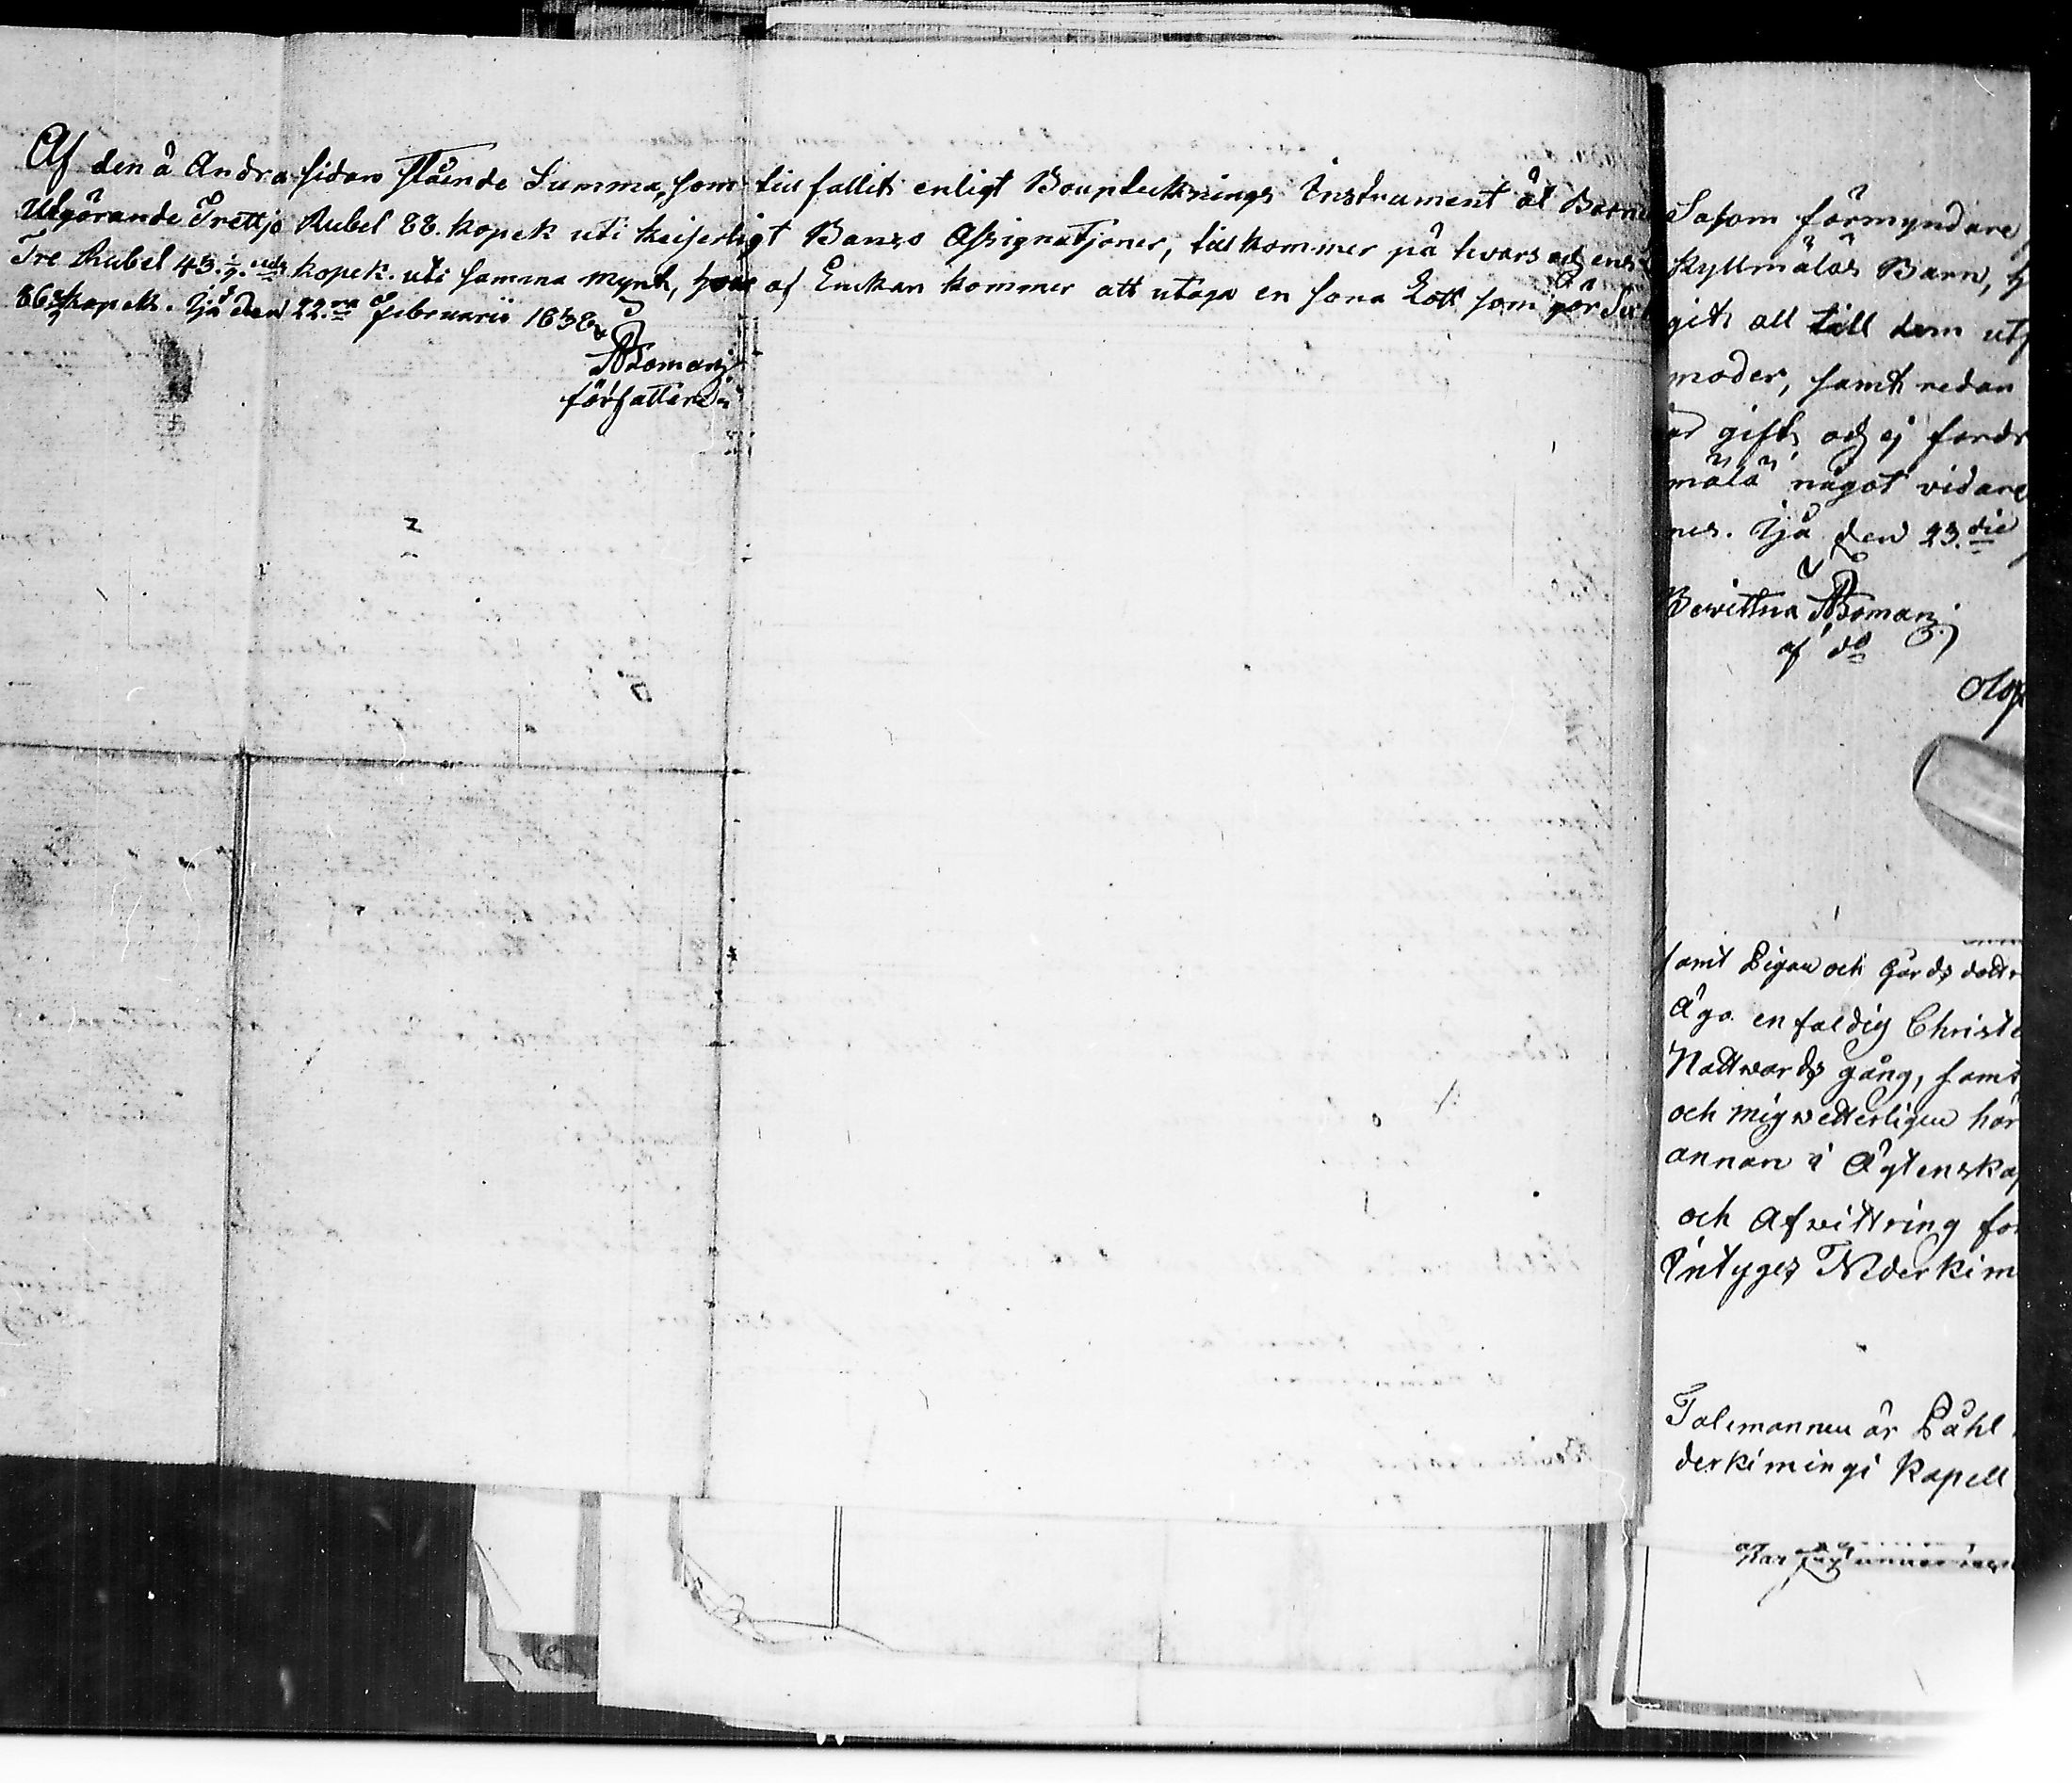 Af den å Andra sidan stående Summa, som tillfallit enligt Bouptecknings Instrument åt Barne
Utgörande Trettjo Rubel 88. kopek uti keiserligt Banco Assignatjoner, tillkommer på hvars och ens
Tre Rubel 43. 1/9. kopek. uti samma mynt, hvar af Enckan kommer att utaga en sona Lott som gör
86 kopek. Ijå den 22.ra februarii 1838
ABoman
författare
Såsom förmyndare
Kyllmäläs Barn, h
git all till dem utf
moder, samt redan
är gift, och ej fordr
mälä något vidare
nes. Ijå den 23.die
Bevittna ABoman
af do
Olof
samt Pigan och Gårds dottr
Äga enfaldig Christe
Nattwards gång, samt
och mig wetterligen här
annan i Ägtenskap
och Afwittring for
Intyges Nederkim
Talemannen är Påhl
derkimingi Kapell